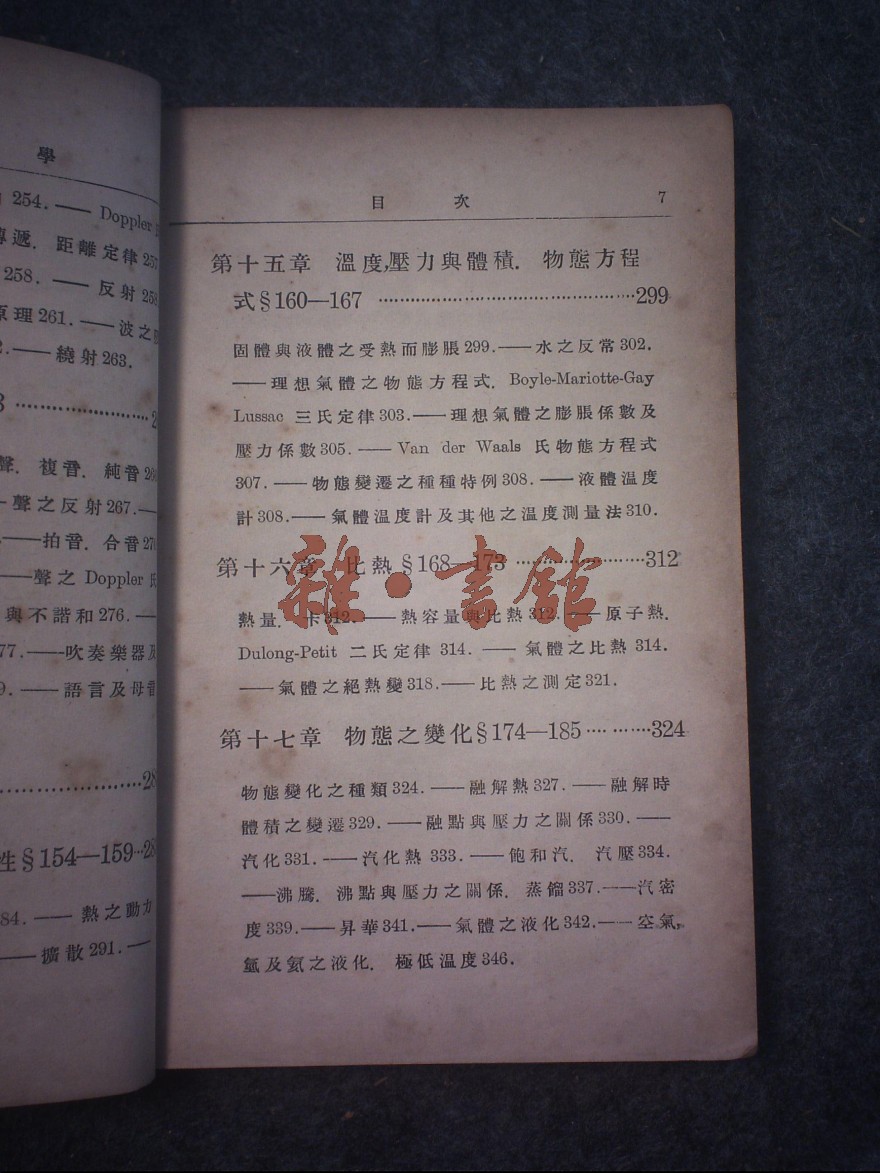 學
254.—— Doppler
遞. 距離定律257
258.—— 反射258
原理261.——波之
——繞射263.
聲. 複音. 純音
聲之反射267.——
——拍音. 合音
——聲之 Doppler 氏
與不諧和276.——
77.——吹奏樂器及
——語言及母音
性§154—159
84.—— 熱之動力
——擴散291.——
目 次 7
第十五章 溫度,壓力與體積. 物態方程
式§160—167 ……………………299
固體與液體之受熱而膨脹299.——水之反常302.
——理想氣體之物態方程式. Boyle-Mariotte-Gay
Lussac 三氏定律303.——理想氣體之膨脹係數及
壓力係數305.——Van der Waals 氏物態方程式
307.——物態變遷之種種特例308.——液體溫度
計308.——氣體溫度計及其他之溫度測量法310.
第十六章 比熱§168—173 ……………312
熱量. 卡312.——熱容量與比熱312.——原子熱.
Dulong-Petit 二氏定律 314.——氣體之比熱 314.
——氣體之絕熱變318.——比熱之測定321.
雜·書館
第十七章 物態之變化§174—185…………324
物態變化之種類324.——融解熱327.——融解時
體積之變遷329.——融點與壓力之關係330.——
汽化331.——汽化熱 333.——飽和汽. 汽壓334.
——沸騰. 沸點與壓力之關係. 蒸餾337.——汽密
度339.——昇華341.——氣體之液化342.——空氣,
氫及氦之液化. 極低溫度346.